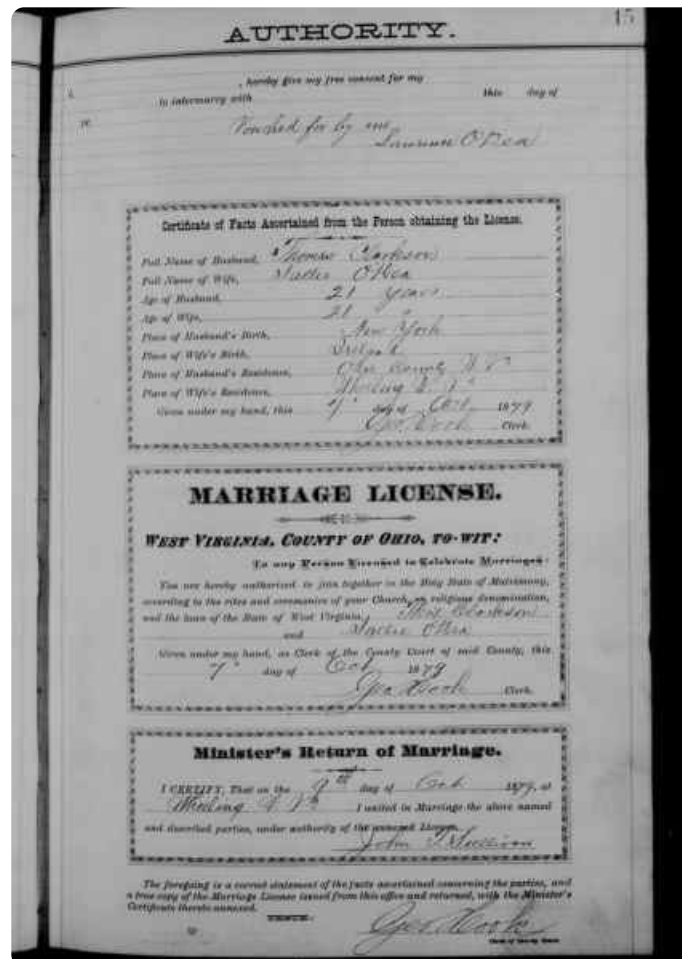 15
AUTHORITY.
I, , hereby give my free consent for my
to intermarry with this day of
Vouched for by me
O'Dea
Certificate of Facts Ascertained from the Person obtaining the License.
Full Name of Husband, Thomas Clarkson
Full Name of Wife, Sallie O'Dea
Age of Husband, 21 years
Age of Wife, 21 "
Place of Husband's Birth, New York
Place of Wife's Birth, Ireland
Place of Husband's Residence, Ohio County W. Va
Place of Wife's Residence, Wheeling W. Va
Given under my hand, this 7" day of Oct. 1879
Geo Hook Clerk.
MARRIAGE LICENSE.
WEST VIRGINIA, COUNTY OF OHIO, TO-WIT:
To any Person Licensed to Celebrate Marriages:
You are hereby authorized to join together in the Holy State of Matrimony,
according to the rites and ceremonies of your Church, or religious denomination,
and the laws of the State of West Virginia, Thos Clarkson
and Sallie O'Dea
Given under my hand, as Clerk of the County Court of said County, this
7" day of Oct 1879
Geo Hook Clerk.
Minister's Return of Marriage.
I CERTIFY, That on the 9th day of Oct. 1879, at
Wheeling W. Va I united in Marriage the above named
and described parties, under authority of the annexed License.
John T. Sullivan
The foregoing is a correct statement of the facts ascertained concerning the parties, and
a true copy of the Marriage License issued from this office and returned, with the Minister's
Certificate thereto annexed.
TESTE:
Geo Hook
Clerk of County Court